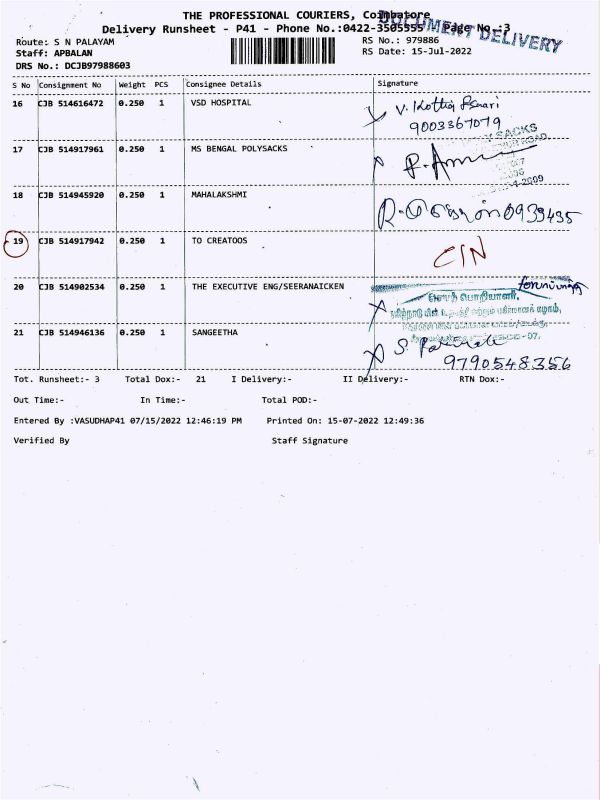 THE PROFESSIONAL COURIERS, Coimbatore
DOCUMENT DELIVERY
Delivery Runsheet - P41 - Phone No.:0422-3505555 Page No.:3
Route: S N PALAYAM
RS No.: 979886
Staff: APBALAN
RS Date: 15-Jul-2022
DRS No.: DCJB97988603
S No Consignment No Weight PCS Consignee Details Signature
16 CJB 514616472 0.250 1 VSD HOSPITAL
9003367079
17 CJB 514917961 0.250 1 MS BENGAL POLYSACKS
SACKS
18 CJB 514945920 0.250 1 MAHALAKSHMI
19 CJB 514917942 0.250 1 TO CREATOOS
C/N
20 CJB 514902534 0.250 1 THE EXECUTIVE ENG/SEERANAICKEN
செயற் பொறியாளர்,
21 CJB 514946136 0.250 1 SANGEETHA
9790548356
Tot. Runsheet:- 3 Total Dox:- 21 I Delivery:- II Delivery:- RTN Dox:-
Out Time:- In Time:- Total POD:-
Entered By :VASUDHAP41 07/15/2022 12:46:19 PM Printed On: 15-07-2022 12:49:36
Verified By Staff Signature